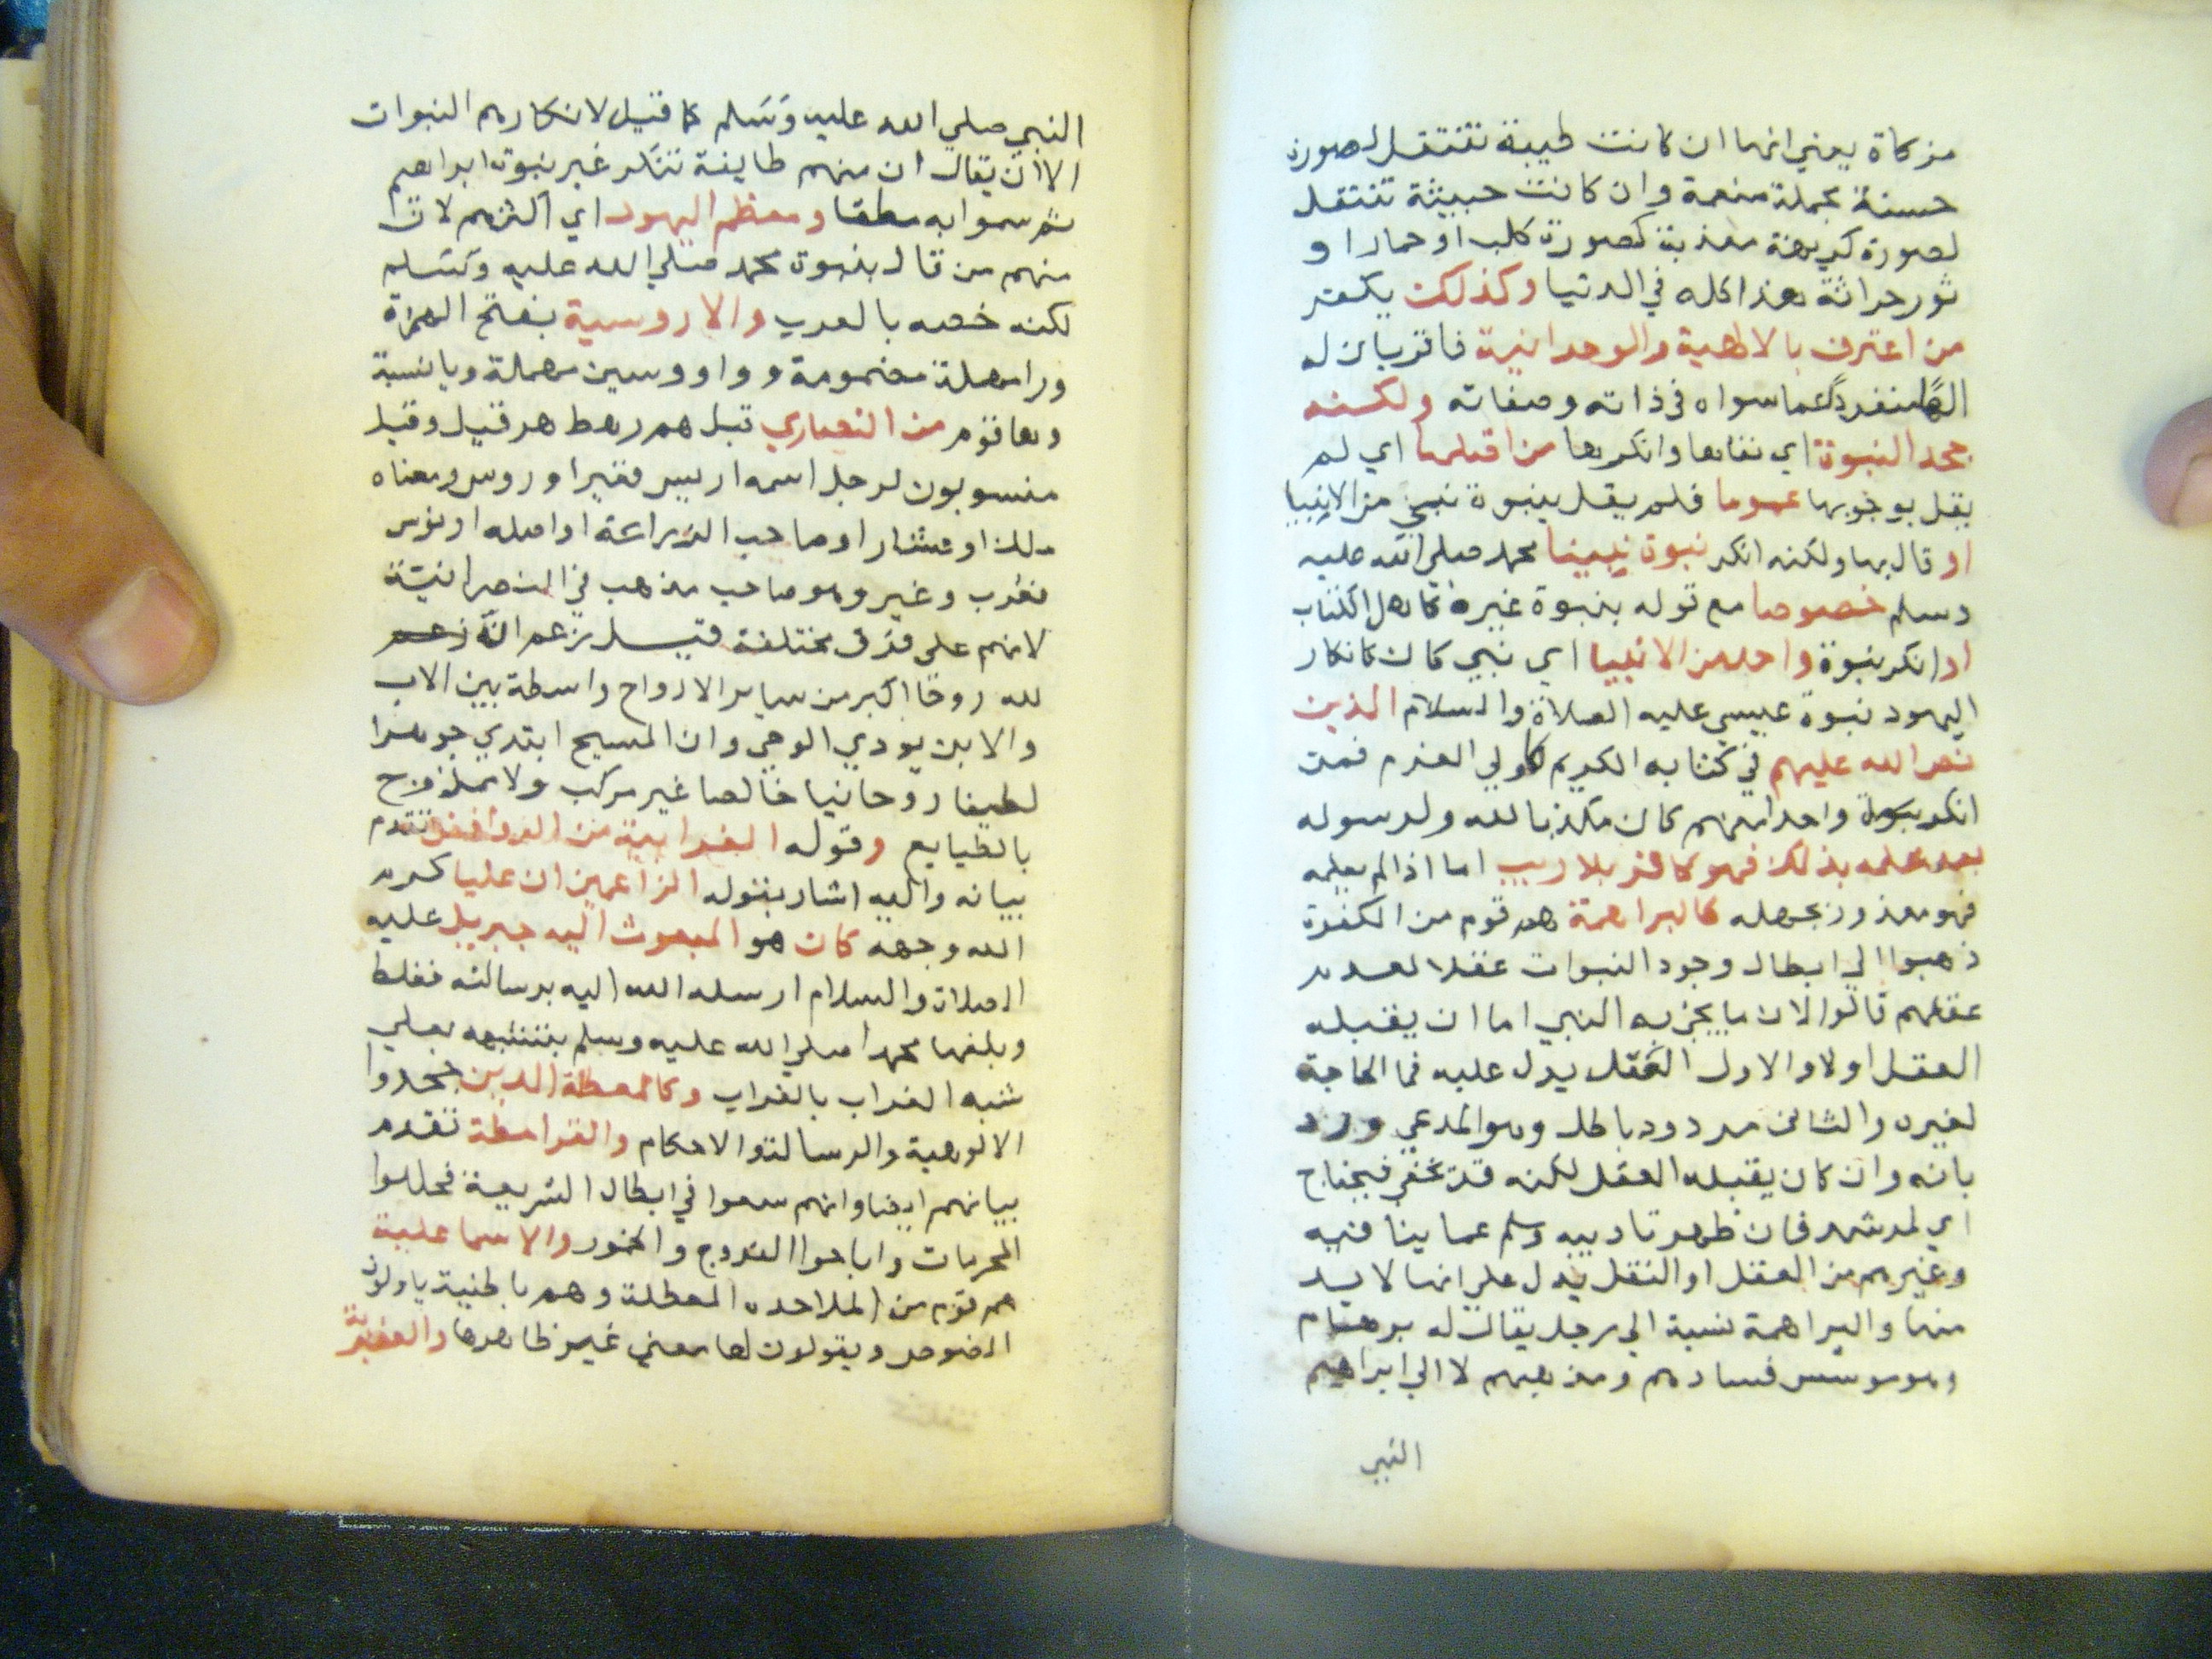 من زكاة يعني انها ان كانت طيبة تنتقل لصورة
حسنة مجملة منعمة وان كانت خبيثة تنتقل
لصورة كريهة معذبة كصورة كلب او حمار او
ثور حراثة هذا كله في الدنيا وكذلك يكفر
من اعترف بالالهية والوحدانية فاقر بان له
الها منفردا عما سواه في ذاته وصفاته ولكنه
جحد النبوة اي نفاها وانكرها من اصلها اي لم
يقل بوجوبها عموما فلم يقل بنبوة نبي من الانبيا
او قال بها ولكنه انكر نبوة نبينا محمد صلي الله عليه
وسلم خصوصا مع قوله بنبوة غيره كاهل الكتاب
او انكر نبوة واحد من الانبيا اي نبي كان كانكار
اليهود نبوة عيسي عليه الصلاة والسلام الذين
نص الله عليهم في كتابه الكريم كاولي العزم فمن
انكر نبوة واحد منهم كان مكذبا لله ولرسوله
بعد علمه بذلك فهو كافر بلا ريب اما اذا لم يعلمه
فهو معذور بجهله كالبراهمة هم قوم من الكفرة
ذهبوا الي ابطال وجود النبوات عقلا لعدم
عقلهم قالوا لان ما يجي به النبي اما ان يقبله
العقل اولا والاول العقل يدل عليه فما الحاجة
لغيره والثاني مردود باطل وهو المدعي ورد
بانه وان كان يقبله العقل لكنه قد يخفي فيحتاج
اي لمرشد فان ظهر تاديبه وسلم عما ينافيه
وغيرهم من العقل او النقل يدل علي انها لا بد
منها والبراهمة نسبة الي رجل يقال له برهام
وهو موسس فسادهم ومذهبهم لا الي ابراهيم
النبي
النبي صلي الله عليه وسلم كما قيل لانكارهم النبوات
الا ان يقال ان منهم طايفة تنكر غير نبوة ابراهيم
ثم سموا به مطلقا ومعظم اليهود اي اكثرهم لان
منهم من قال بنبوة محمد صلي الله عليه وسلم
لكنه خصه بالعرب والاروسية بفتح الهمزة
ورا مهملة مضمومة وواو وسين مهملة ويا نسبة
وها قوم من النصاري قيل هم رهط هرقيل وقيل
منسوبون لرجل اسمه اريس فقيرا وروس ومعناه
ملك او عشار او صاحب الزراعة او اصله اونوس
فعرب وغير وهو صاحب مذهب في النصرانية
لانهم علي فرق مختلفة قيل زعم انه زعم
لله روحا اكبر من ساير الارواح واسطة بين الاب
والابن يودي الوحي وان المسيح ابتدي جوهرا
لطيفا روحانيا خالصا غير مركب ولا ممتزج
بالطبايع وقوله الغرابية من الروافض تقدم
بيانه واليه اشار بقوله الزاعمين ان عليا كرم
الله وجهه كان هو المبعوث اليه جبريل عليه
الصلاة والسلام ارسله الله اليه برسالته فغلط
وبلغها محمدا صلي الله عليه وسلم بتشبهه بعلي
شبه الغراب بالغراب وكالمعطلة الذين جحدوا
الالوهية والرسالة والاحكام والقرامطة تقدم
بيانهم ايضا وانهم سعوا في ابطال الشريعة فحللوا
المحرمات واباحوا الفروج والخمور والاسماعلية
هم قوم من الملاحده المعطلة وهم باطنية ياولون
النصوص ويقولون لها معني غير ظاهرها والعنبرية